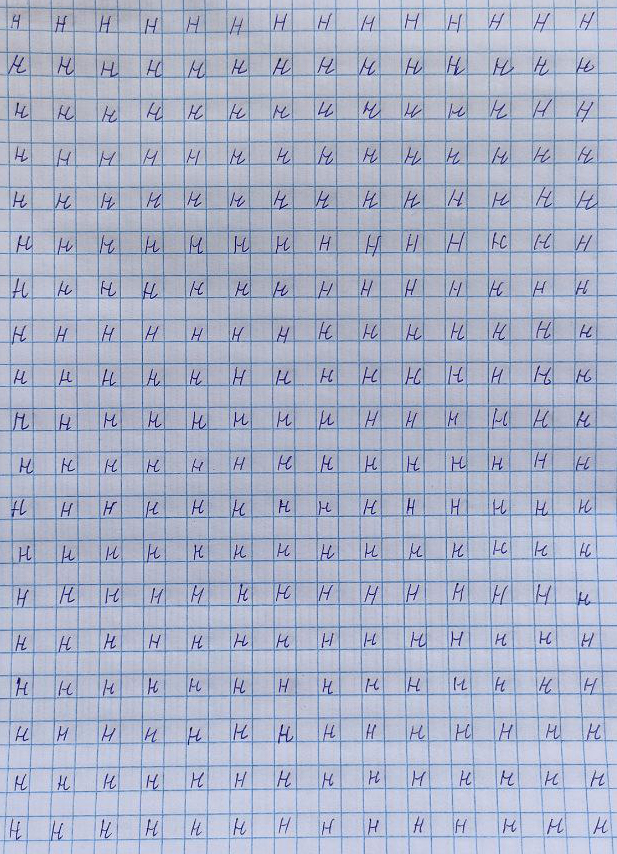 н н н н н н н н н н н н н н
н н н н н н н н н н н н н н
н н н н н н н н н н н н н н
н н н н н н н н н н н н н н
н н н н н н н н н н н н н н
н н н н н н н н н н н н н н
н н н н н н н н н н н н н н
н н н н н н н н н н н н н н
н н н н н н н н н н н н н н
н н н н н н н н н н н н н н
н н н н н н н н н н н н н н
н н н н н н н н н н н н н н
н н н н н н н н н н н н н н
н н н н н н н н н н н н н н
н н н н н н н н н н н н н н
н н н н н н н н н н н н н н
н н н н н н н н н н н н н н
н н н н н н н н н н н н н н
н н н н н н н н н н н н н н